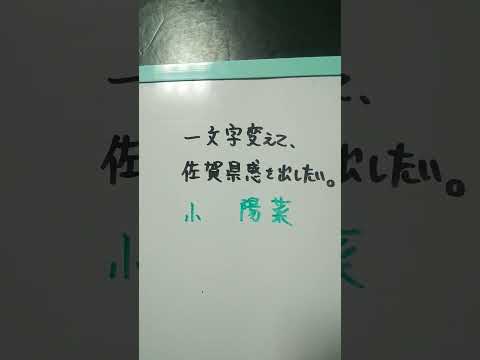 一文字変えて、
佐賀県感を出したい。
小 陽菜